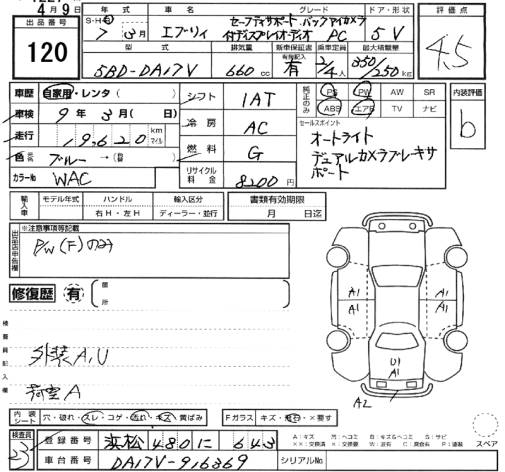 4月9日
出品番号
120
年式 車名 グレード ドア・形状 評価点
S・H・R 7年 3月 エブリィ セーフティサポート バックアイカメラ
付ディスプレイオーディオ PC 5V
4.5
型式 排気量 新車保証書 乗車定員 最大積載量
5BD-DA17V 660cc 有 2/4人 350/250kg
車歴 自家用・レンタ( ) シフト 1AT 純正のみ PS PW AW SR 内装評価
ABS エアB TV ナビ
b
車検 9年 3月( 日) 冷房 AC セールスポイント
走行 19,620 km マイル オートライト
色 ブルー→( ) 燃料 G デュアルカメラブレーキサポート
カラーNo WAC リサイクル料金 8200円
輸入車 モデル年式 ハンドル 輸入区分 書類有効期限
右H・左H ディーラー・並行 月 日迄
出品店申告欄 ※注意事項等記載
P/W(F)のみ
修復歴 有 箇所
検査員記入欄
外装A,U
荷室A
A1 A1
A1 A1
U1
A1
A2
内装シート 穴・破れ・スレ・コゲ・汚れ・キズ・黄ばみ Fガラス キズ・飛石・×要す
スペア
検査員 33
登録番号 浜松 480 に 643
車台番号 DA17V-916369 シリアルNo